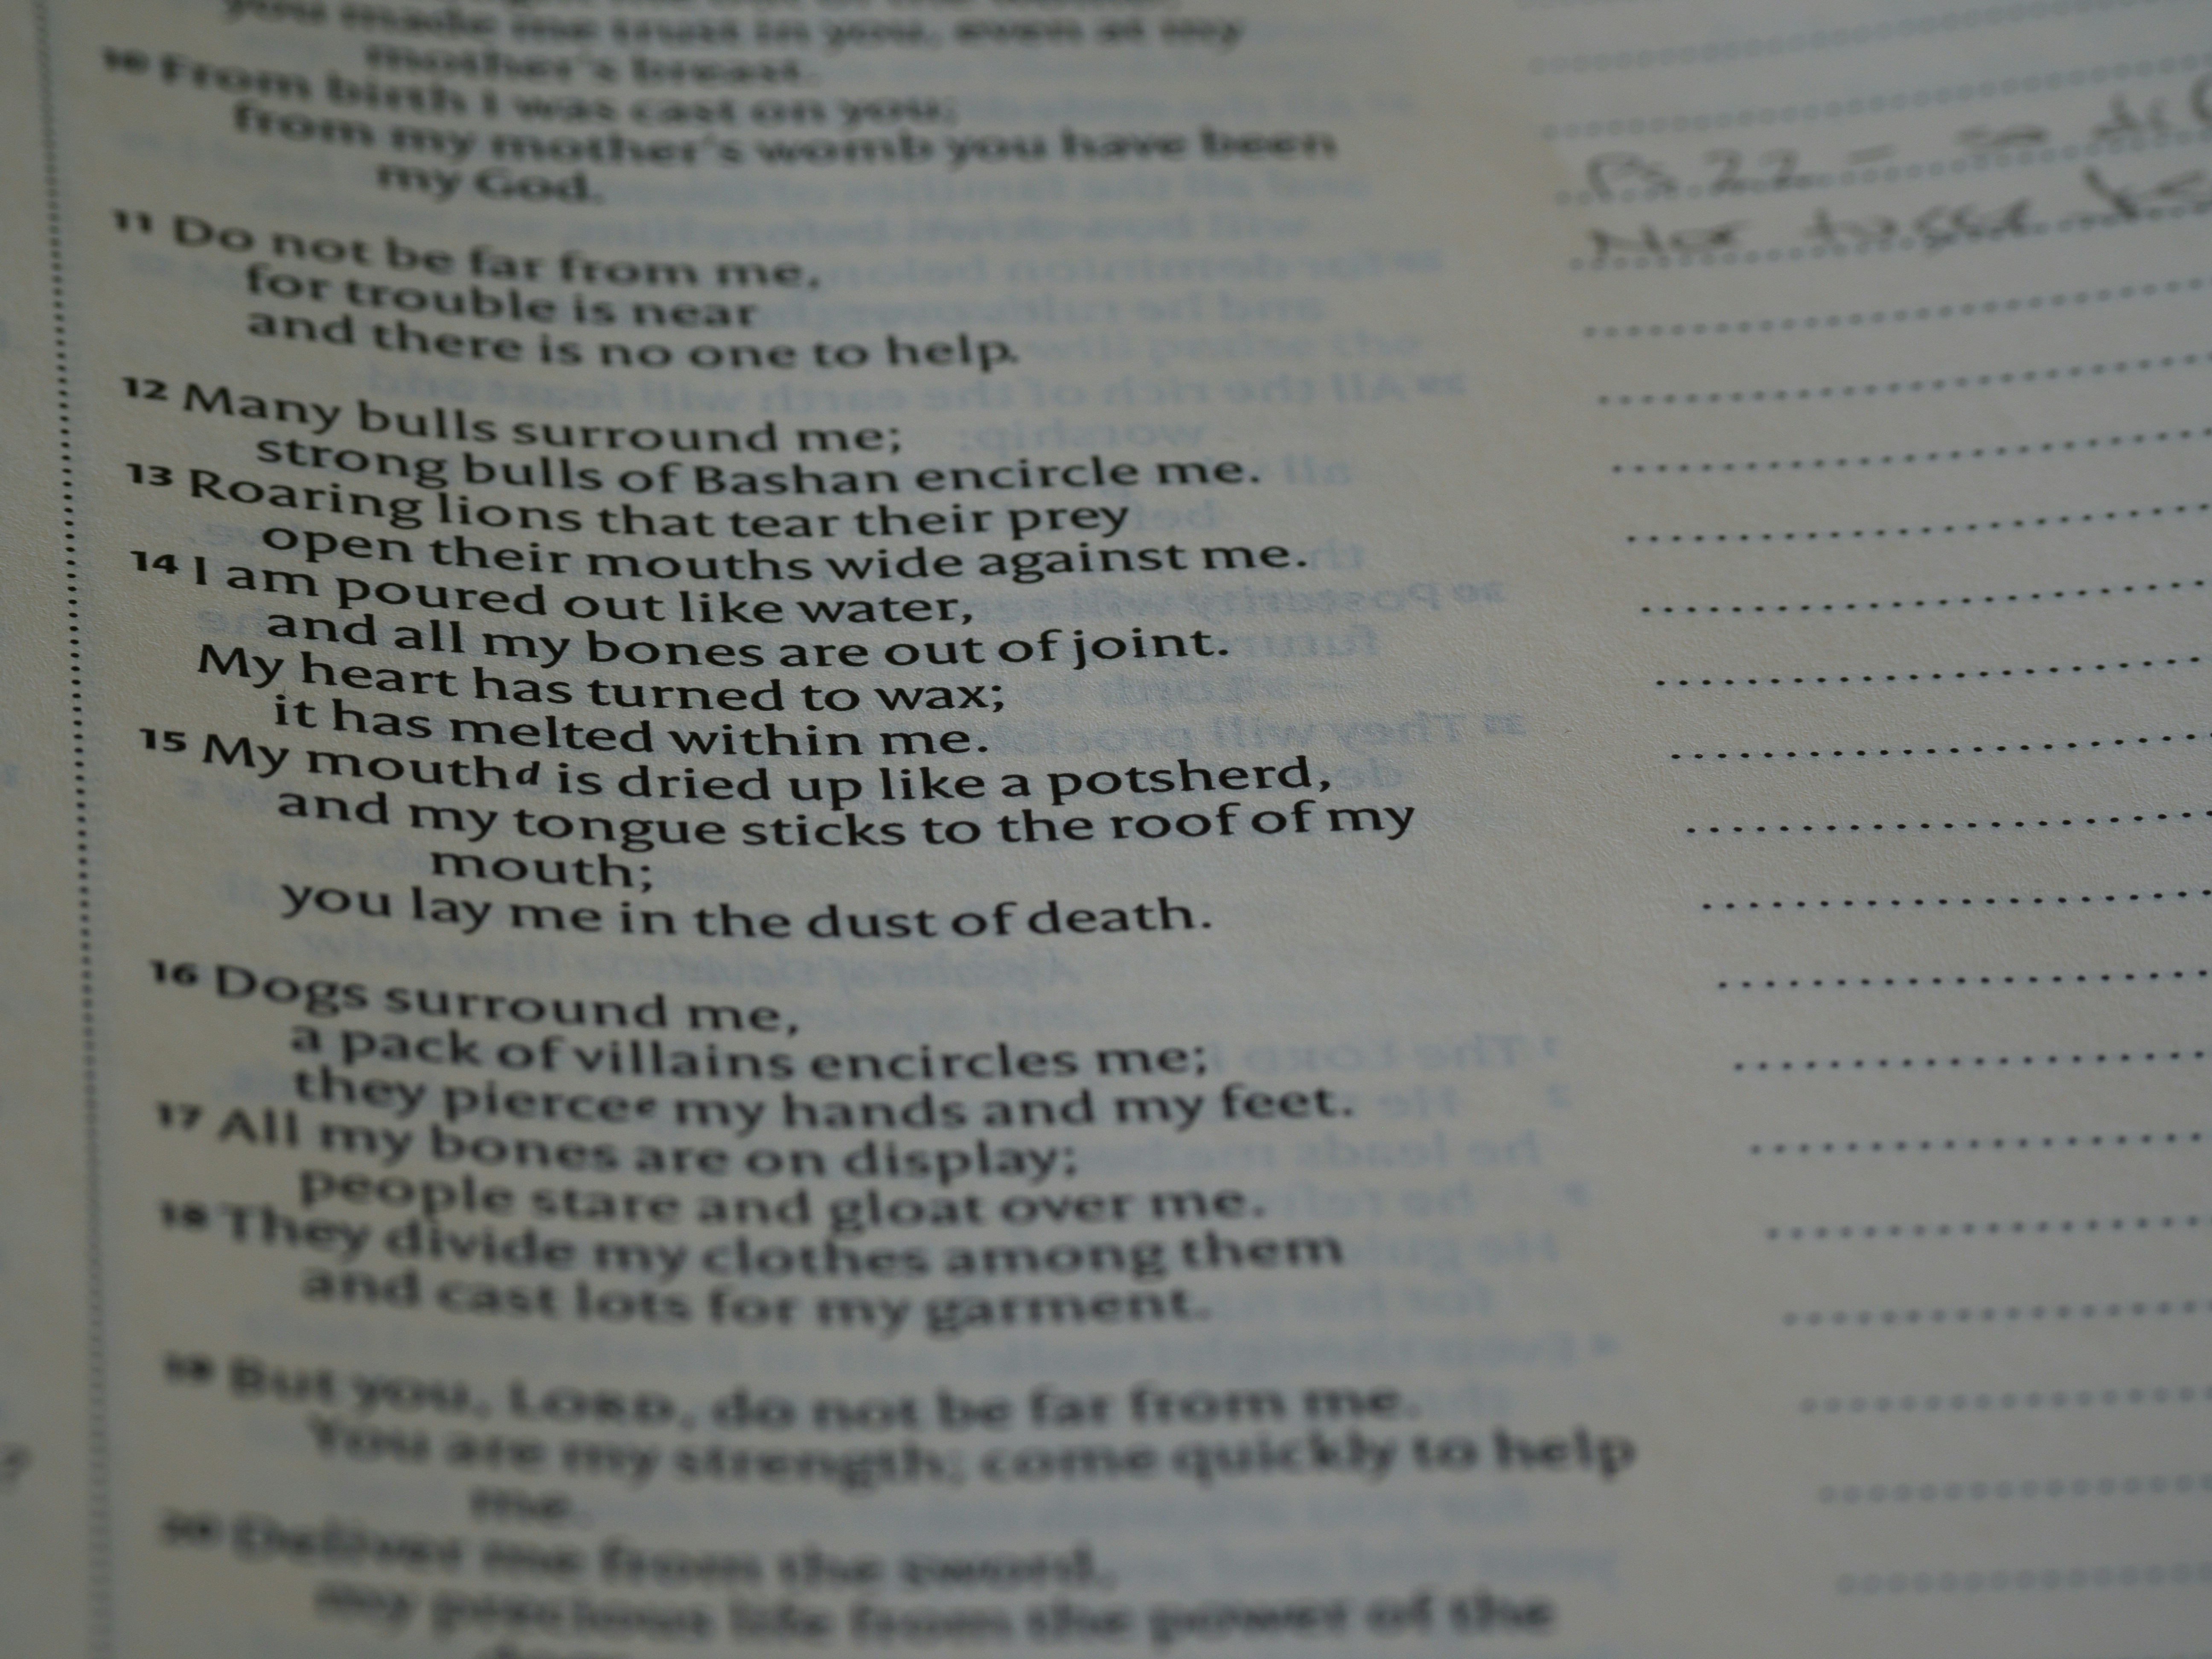 you made me trust in you, even at my
mother's breast.
10 From birth I was cast on you;
from my mother's womb you have been
my God.
11 Do not be far from me,
for trouble is near
and there is no one to help.
12 Many bulls surround me;
strong bulls of Bashan encircle me.
13 Roaring lions that tear their prey
open their mouths wide against me.
14 I am poured out like water,
and all my bones are out of joint.
My heart has turned to wax;
it has melted within me.
15 My mouthd is dried up like a potsherd,
and my tongue sticks to the roof of my
mouth;
you lay me in the dust of death.
16 Dogs surround me,
a pack of villains encircles me;
they piercee my hands and my feet.
17 All my bones are on display;
people stare and gloat over me.
18 They divide my clothes among them
and cast lots for my garment.
19 But you, LORD, do not be far from me.
You are my strength; come quickly to help
me.
20 Deliver me from the sword,
my precious life from the power of the
Ps 22 -
Not